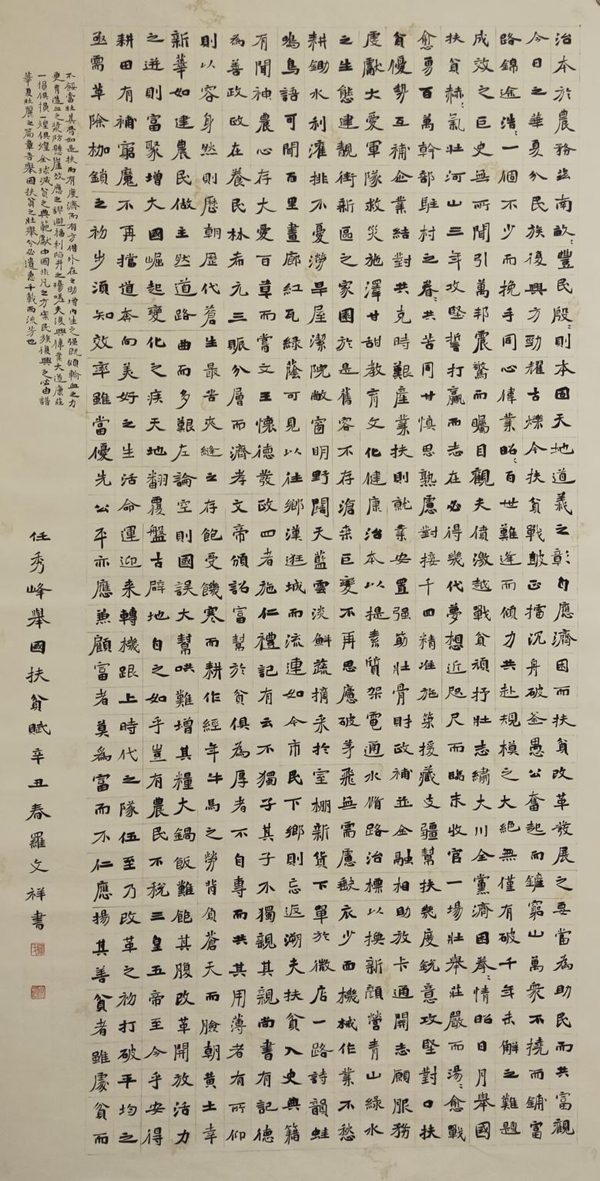 治本於農務茲南畝豐民殷々則本固天地道義之彰自應濟困而扶貧改革發展之要當為助民而共富觀
今日之華夏兮民族復興方勁耀古爍今扶貧戰鼓正擂沉舟破釜愚公奮起而鏟窮山萬眾不撓而鋪富
路錦途浩々一個不少而挽手同心偉業昭々百世難逢而傾力共赴規模之大絕無僅有破千年未解之難題
成效之巨史無所聞引萬邦震驚而矚目觀夫憤激越戰貧頑抒壯志繡大川全黨濟困拳々情昭日月舉國
扶貧赫々氣壯河山三年攻堅誓打贏而志在必得幾代夢想近咫尺而臨末收官一場壯舉莊嚴而湯々愈戰
愈勇百萬幹部駐村之眷々共苦同甘慎思熟慮對接千四精准施策援藏支疆幫扶幾度銳意攻堅對口扶
貧優勢互補企業結對共克時艱產業扶則就業安置強筋壯骨財政補並金融相助放卡通開志願服務
虔獻大愛軍隊救災施澤甘甜教育文化健康治本以提素質架電通水脩路治標以換新顏營青山綠水
之生態連靚街新區之家園於是舊容不存滄桑巨變不再思應破茅飛無需慮歉衣少面機械作業不愁
耕鋤水利灌排不憂澇旱屋潔院敞窗明野闊天藍雲淡斛蔬摘采於室棚新貨下單於微店一路詩韻蛙
鳴鳥語可聞百里畫廊紅瓦綠蔭可見以往鄉漢逛城而流連如今市民下鄉則忘返溯夫扶貧入史典籍
有聞神農心存大愛百草而嘗文王懷德發政四者施仁禮記有云不獨子其子不獨親其親尚書有記德
為善政政在養民林希元三賑分層而濟孝文帝頒詔富幫於貧俱為厚者不自專而共其用薄者有所仰
則以容身然則歷朝歷代蒼生最苦夾縫之存飽受饑寒而耕作經年牛馬之勞背負蒼天而臉朝黃土幸
新華如建農民做主然道路曲而多艱左論空則國誤大幫哄難增其糧大鍋飯難飽其腹改革開放活力
之迸則富聚增大國崛起變化之疾天地翻覆盤古辟地自之如乎豈有農民不稅三皇五帝至今乎安得
耕田有補窮魔不再擋道奔向美好之生活命運迎來轉機跟上時代之隊伍至乃改革之初打破平均之
亟需革除枷鎖之初步須知效率雖當優先公平亦應兼顧富者莫為富而不仁應揚其善貧者雖處貧而
不餒當壯其骨如是扶而有度濟而有方借外在之助增內生之強既傾輸血之力
更育造血之漿防轉崖飲之謬避播利陷井之殤嗟夫復興偉業大道康莊
一場偉煌全球減貧之典範獻中國非凡之方案民族復興之宏曲譜
華夏壯麗之篇章吾舉國扶貧之壯舉兮必遺惠千載而流芳也
任秀峰舉國扶貧賦辛丑春羅文祥書